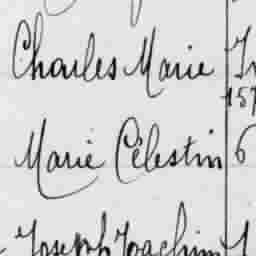 Charles Marie
157
Marie Célestin 6
Joseph Joachim